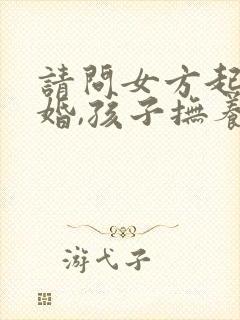 請問女方起
婚,孩子撫養
游弋子